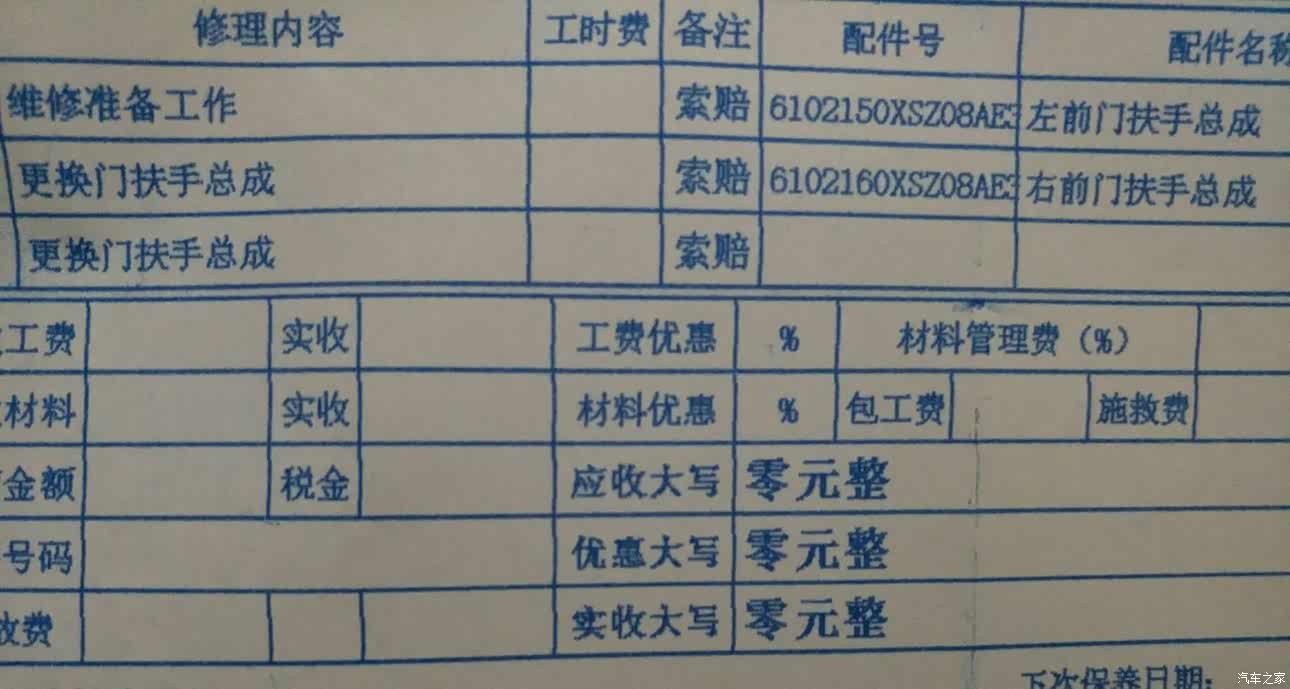 修理内容 工时费 备注 配件号 配件名称
维修准备工作 索赔 6102150XSZ08AE3 左前门扶手总成
更换门扶手总成 索赔 6102160XSZ08AE3 右前门扶手总成
更换门扶手总成 索赔
工费 实收 工费优惠 % 材料管理费（%）
材料 实收 材料优惠 % 包工费 施救费
金额 税金 应收大写 零元整
号码 优惠大写 零元整
收费 实收大写 零元整
下次保养日期:
汽车之家